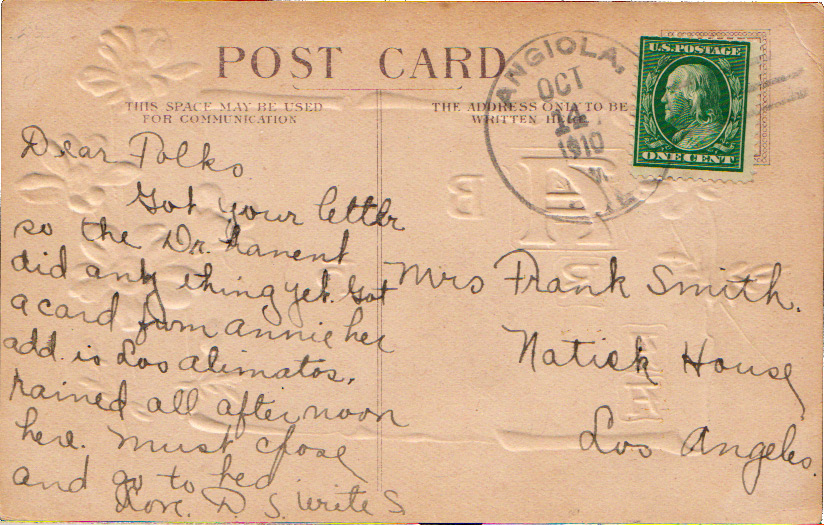 POST CARD
THIS SPACE MAY BE USED
FOR COMMUNICATION
THE ADDRESS ONLY TO BE
WRITTEN HERE
ANGIOLA,
OCT
1910
U.S. POSTAGE
ONE CENT
Dear Folks
Got your letter
so the Dr. hanent
did any thing yet. Got
a card from annie her
add. is Los alimatos.
rained all after noon
here. must close
and go to bed
Love. D S. write S
Mrs Frank Smith.
Natick House
Los Angeles.